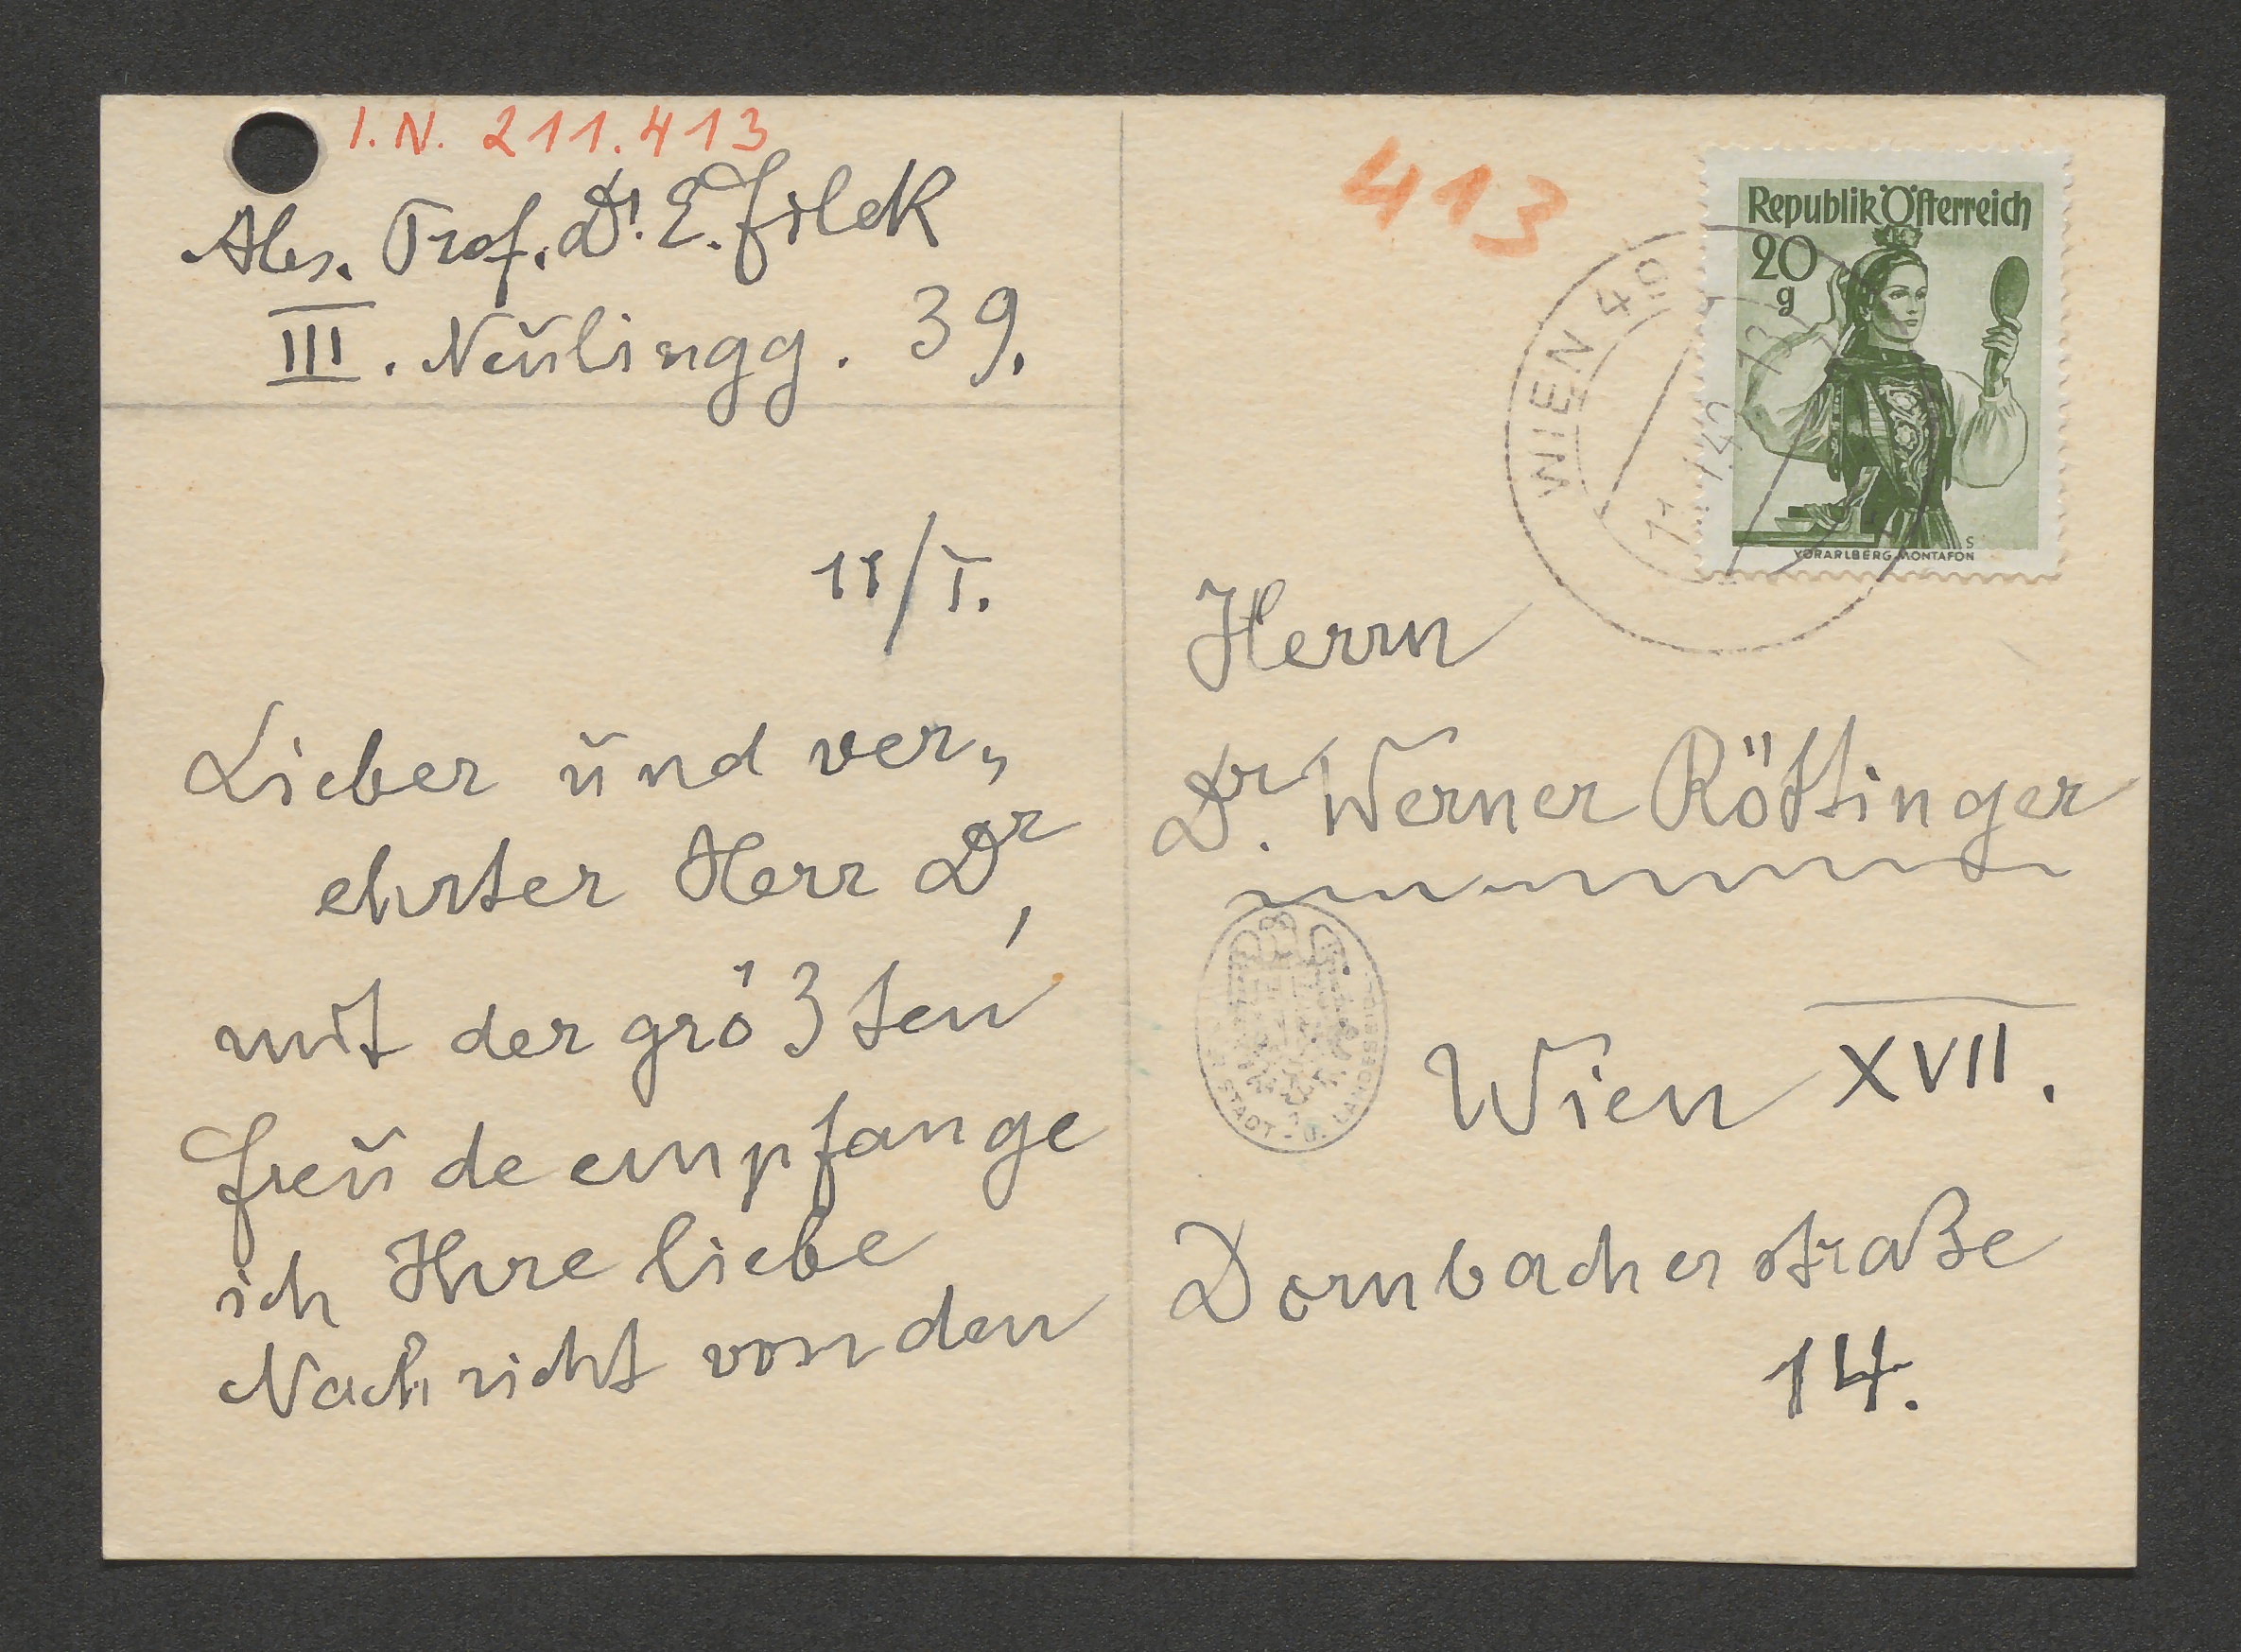 I.N. 211.413
Abs. Prof. Dr. E. Filek
III. Neulingg. 39.
11/I.
Lieber und ver„
ehrter Herr Dr,
mit der größten
Freude empfange
ich Ihre liebe
Nachricht von den
413
Republik Österreich
20
g
VORARLBERG-MONTAFON
WIEN 49
Herrn
Dr. Werner Röttinger
STADT - U. LANDES
Wien XVII.
Dornbacherstraße
14.